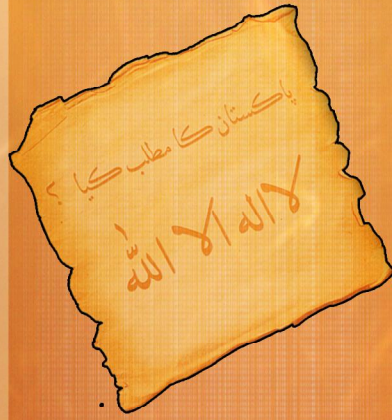 پاکستان کا مطلب کیا ؟
لا اله الا اللّٰہ